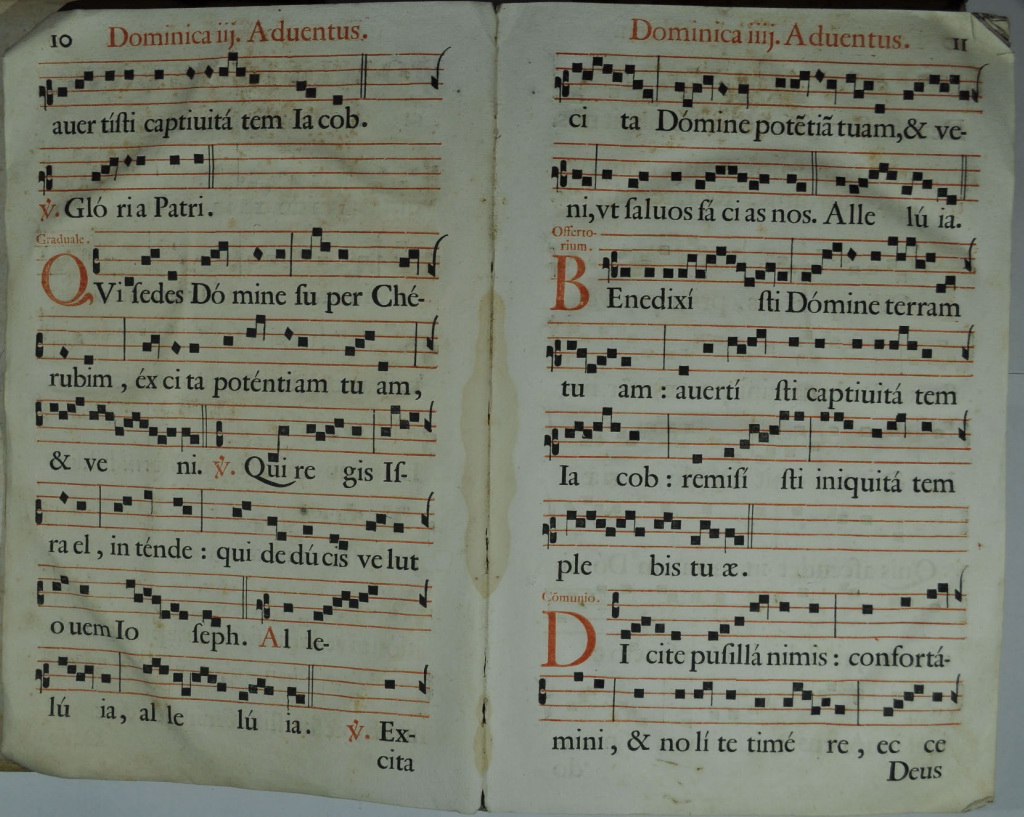 10 Dominica iij. Aduentus.
auer tiſti captiuitá tem Ia cob.
℣. Gló ri a Patri.
Graduale.
QVi ſedes Dó mine ſu per Ché-
rubim, éx ci ta poténti am tu am,
& ve ni. ℣. Qui re gis Iſ-
ra el, in ténde: qui de dú cis ve lut
o uem Io ſeph. Al le-
lú ia, al le lú ia. ℣. Ex-
cita
Dominica iiij. Aduentus. 11
ci ta Dómine potẽtiã tuam, & ve-
ni, vt ſaluos fá ci as nos. Alle lú ia.
Offerto-
rium.
BEnedixí ſti Dómine terram
tu am: auertí ſti captiuitá tem
Ia cob: remiſí ſti iniquitá tem
ple bis tu æ.
Cõmunio.
DI cite puſillá nimis: confortá-
mini, & no lí te timé re, ec ce
Deus